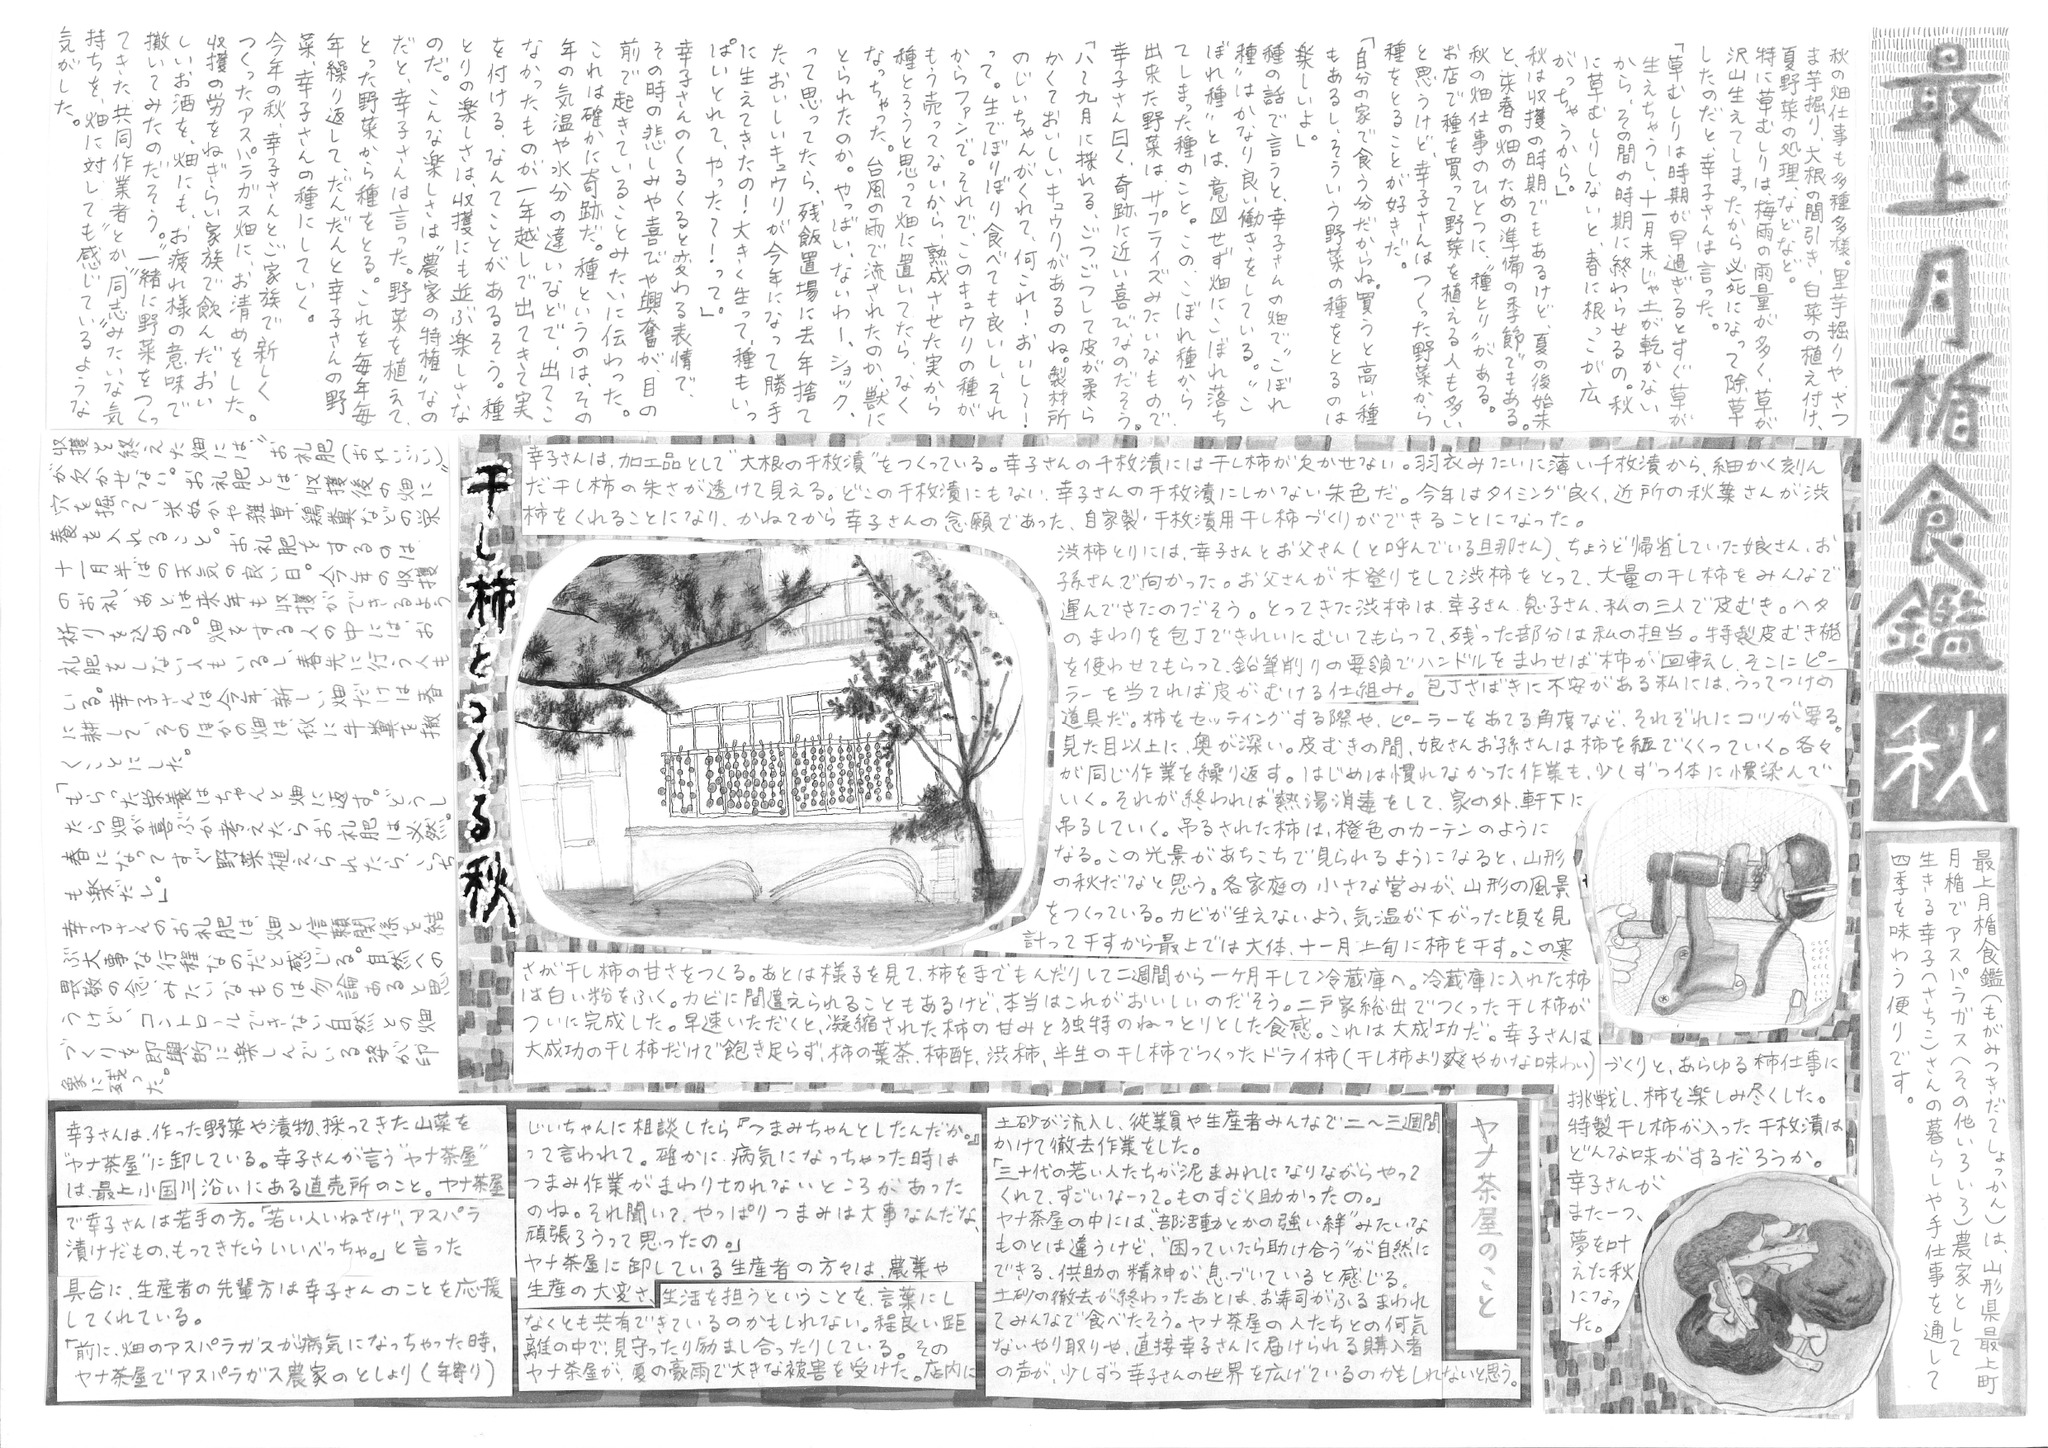 最上月楯食鑑
秋
最上月楯食鑑(もがみつきだてしょっかん)は、山形県最上町
月楯でアスパラガス(その他いろいろ)農家として
生きる幸子(さちこ)さんの暮らしや手仕事を通して
四季を味わう便りです。
秋の畑仕事も多種多様。里芋掘りや、さつ
ま芋掘り、大根の間引き、白菜の植え付け、
夏野菜の処理、などなど。
特に草むしりは、梅雨の雨量が多く、草が
沢山生えてしまったから必死になって除草
したのだと、幸子さんは言った。
「草むしりは時期が早過ぎるとすぐ草が
生えちゃうし、十一月末じゃ土が乾かない
から、その間の時期に終わらせるの。秋
に草むしりしないと、春に根っこが広
がっちゃうから。」
秋は収穫の時期でもあるけど、夏の後始末
と、来春の畑のための準備の季節でもある。
秋の畑仕事のひとつに、“種とり”がある。
お店で種を買って野菜を植える人も多い
と思うけど、幸子さんはつくった野菜から
種をとることが好きだ。
「自分の家で食う分だからね。買うと高い種
もあるし、そういう野菜の種をとるのは
楽しいよ。」
種の話で言うと、幸子さんの畑で“こぼれ
種”はかなり良い働きをしている。“こ
ぼれ種”とは、意図せず畑にこぼれ落ち
てしまった種のこと。この、こぼれ種から
出来た野菜は、サプライズみたいなもので、
幸子さん曰く、奇跡に近い喜びなのだそう。
「八て九月に採れる、ごつごつして皮が柔ら
かくておいしいキュウリがあるのね。製材所
のじいちゃんがくれて、何これー!おいしー!
って。生でぼりぼり食べても良いし、それ
からファンで。それで、このキュウリの種が
もう売ってないから、熟成させた実から
種とろうと思って畑に置いてたら、なく
なっちゃった。台風の雨で流されたのか、獣に
とられたのか。やっばい、ないわー、ショック、
って思ってたら、残飯置場に去年捨て
たおいしいキュウリが今年になって勝手
に生えてきたの!大きく生って、種もいっ
ぱいとれて、やったて!って。」
幸子さんのくるくると変わる表情で、
その時の悲しみや喜びや興奮が、目の
前で起きていることみたいに伝わった。
これは確かに奇跡だ。種というのは、その
年の気温や水分の違いなどで、出てこ
なかったものが一年越しで出てきて実
を付ける、なんてことがあるそう。種
とりの楽しさは、収穫にも並ぶ楽しさな
のだ。こんな楽しさは“農家の特権”なの
だと、幸子さんは言った。野菜を植えて、
とった野菜から種をとる。これを毎年毎
年繰り返して、だんだんと幸子さんの野
菜、幸子さんの種にしていく。
今年の秋、幸子さんとご家族で新しく
つくったアスパラガス畑に、お清めをした。
収穫の労をねぎらい家族で飲んだおい
しいお酒を、畑にも、お疲れ様の意味で
撒いてみたのだそう。“一緒に野菜をつくっ
てきた共同作業者とか“同志”みたいな気
持ちを、畑に対しても感じているような
気がした。
収穫を終えた畑には“お礼肥(おれいごい)”
が欠かせない。お礼肥とは、収穫後の畑に
穴を掘って、米ぬかや雑草、鶏糞などの栄
養を入れること。お礼肥をするのは、
十一月半ばの天気の良い日。今年の収穫
のお礼、あとは来年も収穫ができるよう
祈りを込める。畑をする人の中には、お
礼肥をしない人もいるし、春先に行う人も
いる。幸子さんは今年、新しい畑だけは春
に耕して、そのほかの畑は、秋に牛糞を撒
くことにした。
「もらった栄養はちゃんと畑に返す。どうし
たら畑が喜ぶか考えたらお礼肥は必然。
春になってすぐ野菜植えられたら、いち
も楽だし。」
幸子さんのお礼肥は、畑と信頼関係を結
ぶ大事な行程なのだと感じる。自然への
畏敬の念、みたいなものは勿論あると思
うけど、コントロールできない自然との畑
づくりを即興的に楽しんでいる姿が印
象に残った。
干し柿とつくる秋
幸子さんは、加工品として“大根の千枚漬”をつくっている。幸子さんの千枚漬には干し柿が欠かせない。羽衣みたいに薄い千枚漬から、細かく刻ん
だ干し柿の朱さが透けて見える。どこの千枚漬にもない、幸子さんの千枚漬にしかない朱色だ。今年はタイミング良く、近所の秋葉さんが渋
柿をくれることになり、かねてから幸子さんの念願であった、自家製・千枚漬用干し柿づくりができることになった。
渋柿とりには、幸子さんとお父さん(と呼んでいる旦那さん)、ちょうど帰省していた娘さん、お
孫さんで向かった。お父さんが木登りをして渋柿をとって、大量の干し柿をみんなで
運んできたのだそう。とってきた渋柿は、幸子さん、息子さん、私の三人で皮むき。ヘタ
のまわりを包丁できれいにむいてもらって、残った部分は私の担当。特製皮むき機
を使わせてもらって、鉛筆削りの要領でハンドルをまわせば柿が回転し、そこにピー
ラーを当てれば皮がむける仕組み。包丁さばきに不安がある私には、うってつけの
道具だ。柿をセッティングする際や、ピーラーをあてる角度など、それぞれにコツが要る。
見た目以上に、奥が深い。皮むきの間、娘さんお孫さんは柿を紐でくくっていく。各々
が同じ作業を繰り返す。はじめは慣れなかった作業も、少しずつ体に慣染んで
いく。それが終われば熱湯消毒をして、家の外、軒下に
吊るしていく。吊るされた柿は、橙色のカーテンのように
なる。この光景があちこちで見られるようになると、山形
の秋だなと思う。各家庭の小さな営みが、山形の風景
をつくっている。カビが生えないよう、気温が下がった頃を見
計って干すから最上では大体、十一月上旬に柿を干す。この寒
さが干し柿の甘さをつくる。あとは様子を見て、柿を手でもんだりして二週間から一ヶ月干して冷蔵庫へ。冷蔵庫に入れた柿
は白い粉をふく。カビに間違えられることもあるけど、本当はこれがおいしいのだそう。二戸家総出でつくった干し柿が
ついに完成した。早速いただくと、凝縮された柿の甘みと独特のねっとりとした食感。これは大成功だ。幸子さんは
大成功の干し柿だけで飽き足らず、柿の葉茶、柿酢、渋柿、半生の干し柿でつくったドライ柿(干し柿より爽やかな味わい)づくりと、あらゆる柿仕事に
挑戦し、柿を楽しみ尽くした。
特製干し柿が入った千枚漬は
どんな味がするだろうか。
幸子さんが
また一つ、
夢を叶
えた秋
になっ
た。
ヤナ茶屋のこと
幸子さんは、作った野菜や漬物、採ってきた山菜を
“ヤナ茶屋”に卸している。幸子さんが言う“ヤナ茶屋”
は、最上小国川沿いにある直売所のこと。ヤナ茶屋
で幸子さんは若手の方。「若い人いねさげ、アスパラ
漬けだもの、もってきたらいいべっちゃ。」と言った
具合に、生産者の先輩方は幸子さんのことを応援
してくれている。
「前に、畑のアスパラガスが病気になっちゃった時、
ヤナ茶屋でアスパラガス農家のとしょり(年寄り)
じいちゃんに相談したら『つまみちゃんとしたんだか。』
って言われて。確かに、病気になっちゃった時は
つまみ作業がまわり切れないところがあった
のね。それ聞いて、やっぱりつまみは大事なんだな、
頑張ろうって思ったの。」
ヤナ茶屋に卸している生産者の方々は、農業や
生産の大変さ、生活を担うということを、言葉にし
なくとも共有できているのかもしれない。程良い距
離の中で、見守ったり励まし合ったりしている。その
ヤナ茶屋が、夏の豪雨で大きな被害を受けた。店内に
土砂が流入し、従業員や生産者みんなで二〜三週間
かけて撤去作業をした。
「三十代の若い人たちが泥まみれになりながらやって
くれて、すごいなーって。ものすごく助かったの。」
ヤナ茶屋の中には、“部活動とかの強い絆”みたいな
ものとは違うけど、“困っていたら助け合う”が自然に
できる、供助の精神が息づいていると感じる。
土砂の撤去が終わったあとは、お寿司がふるまわれ
てみんなで食べたそう。ヤナ茶屋の人たちとの何気
ないやり取りや、直接幸子さんに届けられる購入者
の声が、少しずつ幸子さんの世界を広げているのかもしれないと思う。